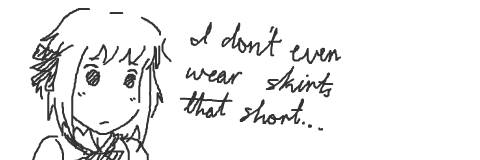 I don't even
wear skirts
that short...